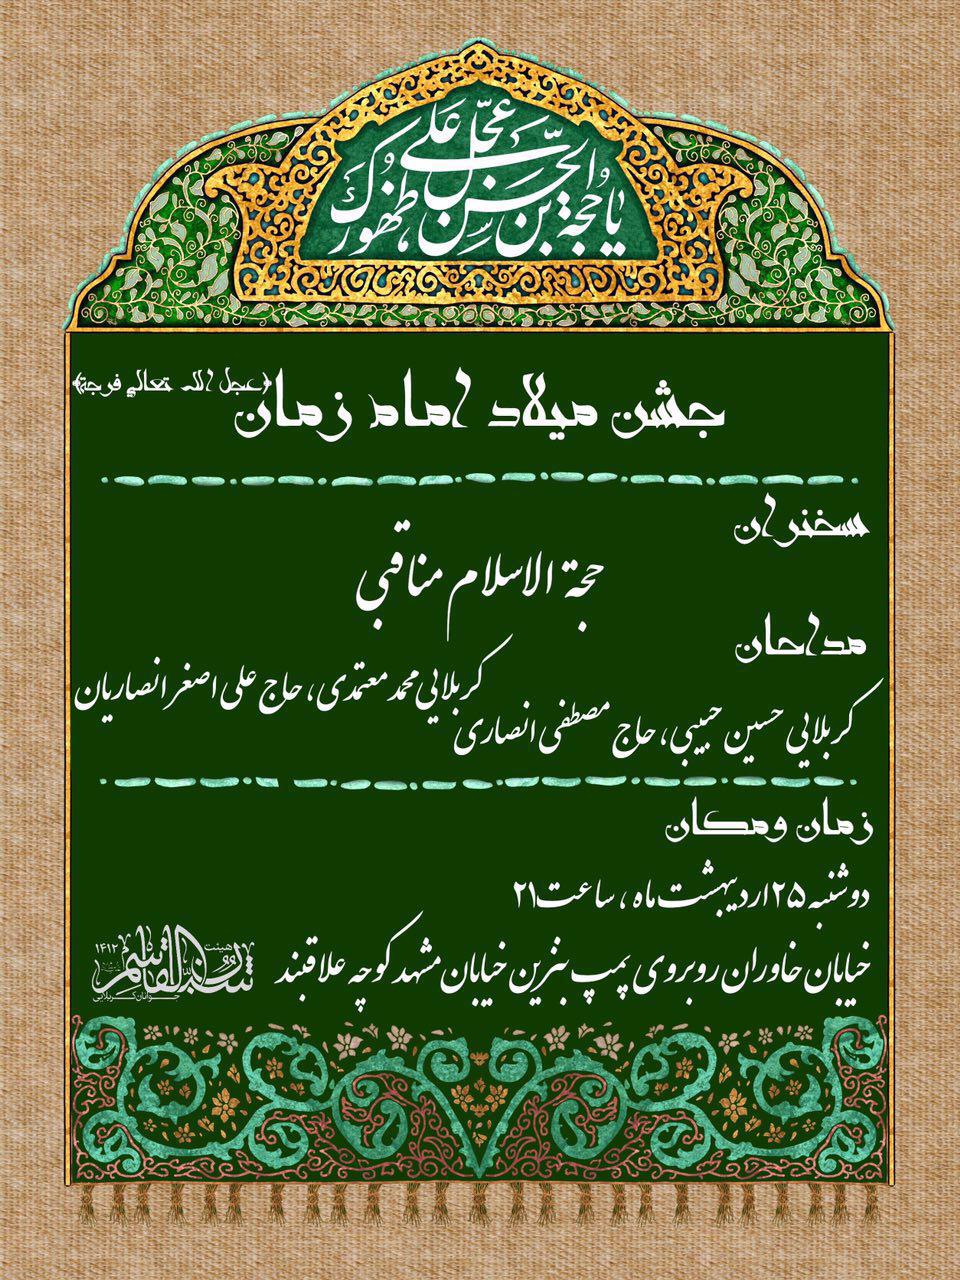 یا حجة بن الحسن عجل علی ظهورک
جشن میلاد امام زمان ﴿عجل الله تعالی فرجة﴾
سخنران
حجة الاسلام مناقبی
مداحان
کربلایی محمد معتمدی، حاج علی اصغر انصاریان
کربلایی حسین حبیبی، حاج مصطفی انصاری
زمان ومکان
دوشنبه ۲۵ اردیبهشت ماه ، ساعت ۲۱
خیابان خاوران روبروی پمپ بنزین خیابان مشهد کوچه علاقبند
هیئت
۱۴۱۲
جوانان کربلایی